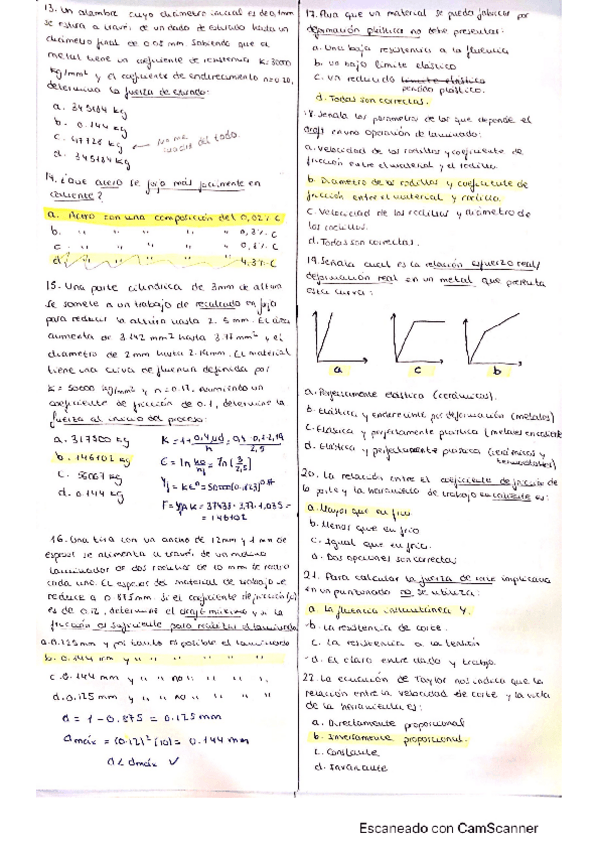 13. Un alambre cuyo diámetro inicial es de 0,1mm
se estira a través de un dado de estirado hasta un
diámetro final de 0.08 mm. Sabiendo que el
metal tiene un coeficiente de resistencia K=3000
kg/mm² y el coeficiente de endurecimiento n=0.20,
determina la fuerza de estirado:
a. 345184 kg
b. 0.144 kg
c. 47728 kg
No me cuadra del todo
d. 345184 kg
14. ¿Que acero se forja más facilmente en
caliente?
a. Acero con una composición del 0,02% C
b. " " " " " 0,2% C
c. " " " " " 0,6% C
d. " " " " " 4.3% C
15. Una parte cilíndrica de 3mm de altura
se somete a un trabajo de recalcado en forja
para reducir la altura hasta 2.5mm. El área
aumenta de 3.142 mm² hasta 3.77 mm² y el
diametro de 2mm hasta 2.19mm. El material
tiene una curva de fluencia definida por
K=50000 kg/mm² y n=0.17. Asumiendo un
coeficiente de fricción de 0.1, determine la
fuerza al inicio del proceso:
a. 317500 kg
b. 146102 kg
c. 56067 kg
d. 0.144 kg
K = 1 + 0.4μd/h
E = ln h0/h = ln(3/2,5)
F = YfAK = 37435·3.77·1.035 =
= 146102
16. Una tira con un ancho de 12mm y 1mm de
espesor se alimenta a través de un molino
laminador de dos rodillos de 10 mm de radio
cada uno. El espesor del material de trabajo se
reduce a 0.875mm. Si el coeficiente de fricción
es de 0.12, determine el draft máximo y si la
fricción es suficiente para realizar el laminado
a. 0.125mm y por tanto es posible el laminado
b. 0.144 mm y " " " " "
c. 0.144 mm y " " no " " "
d. 0.125 mm y " " no " " "
d = 1 - 0.875 = 0.125 mm
dmáx = (0.12)²(10) = 0.144 mm
d < dmáx ✓
17. Para que un material se pueda fabricar por
deformación plástica no debe presentar:
a. Una baja resistencia a la fluencia
b. Un bajo límite elástico
c. Un reducido límite elástico
período plástico.
d. Todas son correctas.
18. Señala los parámetros de los que depende el
draft en una operación de laminado:
a. Velocidad de los rodillos y coeficiente de
fricción entre el material y el rodillo.
b. Diámetro de los rodillos y coeficiente de
fricción entre el material y rodillo.
c. Velocidad de los rodillos y diámetro de
los rodillos.
d. Todas son correctas.
19. Señala cual es la relación esfuerzo real/
deformación real en un metal que presenta
esta curva:
a c b
a. Perfectamente elástica (cerámicos).
b. Elástica y endurecimiento por deformación (metales)
c. Elástica y perfectamente plástica (metales en caliente)
d. Elástica y perfectamente plástica (cerámicos y
termoestables)
20. La relación entre el coeficiente de fricción de
la parte y la herramienta de trabajo en caliente es:
a. Mayor que en frio
b. Menor que en frio
c. Igual que en frio.
d. Dos opciones son correctas
21. Para calcular la fuerza de corte implicada
en un punzonado no se utiliza:
a. La fluencia instantánea Y.
b. La resistencia de corte.
c. La resistencia a la tensión
d. El claro entre dado y trabajo.
22. La ecuación de Taylor nos indica que la
relación entre la velocidad de corte y la vida
de la herramienta es:
a. Directamente proporcional
b. Inversamente proporcional.
c. Constante
d. Invariante
Escaneado con CamScanner